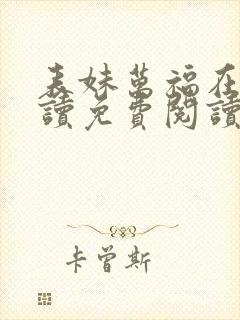 表妹萬福在
讀免費閱讀
卡曾斯